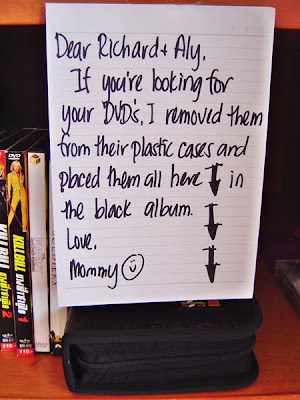 Dear Richard + Aly,
If you're looking for
your DVD's, I removed them
from their plastic cases and
placed them all here ↓ in
the black album. ↓
Love, ↓
Mommy ☺
DVD
KILL BILL
2
KILL BILL
1
110.-
110.-